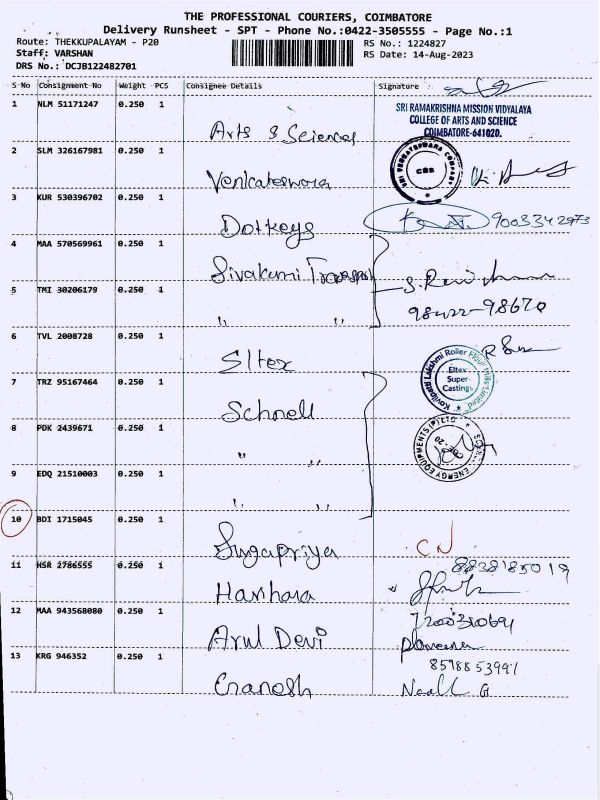 THE PROFESSIONAL COURIERS, COIMBATORE
Delivery Runsheet - SPT - Phone No.:0422-3505555 - Page No.:1
Route: THEKKUPALAYAM - P20 RS No.: 1224827
Staff: VARSHAN RS Date: 14-Aug-2023
DRS No.: DCJB122482701
S No Consignment No Weight PCS Consignee Details Signature
1 NLM 51171247 0.250 1 Arts & Sciences
SRI RAMAKRISHNA MISSION VIDYALAYA
COLLEGE OF ARTS AND SCIENCE
COIMBATORE-641020.
2 SLM 326167981 0.250 1 Venkateswara
SRI VENKATESWARA COMPANY
CBE
3 KUR 530396702 0.250 1 Dotkeys 9003342973
4 MAA 570569961 0.250 1 Sivakumi Transport
5 TMI 30206179 0.250 1 " "
98422-98670
6 TVL 2008728 0.250 1 Sltex
Kovilpatti Lakshmi Roller Flour Mills Limited
Eltex
Super
Castings
7 TRZ 95167464 0.250 1 Schnell
8 PDK 2439671 0.250 1 " "
ENERGY EQUIPMENTS (P) LTD
CBE-20
9 EDQ 21510003 0.250 1 " "
10 BDI 1715045 0.250 1 Sugapriya CN
11 HSR 2786555 0.250 1 Harihara
8838185019
12 MAA 943568080 0.250 1 Arul Devi
7200310691
13 KRG 946352 0.250 1 Ganesh
8598853991